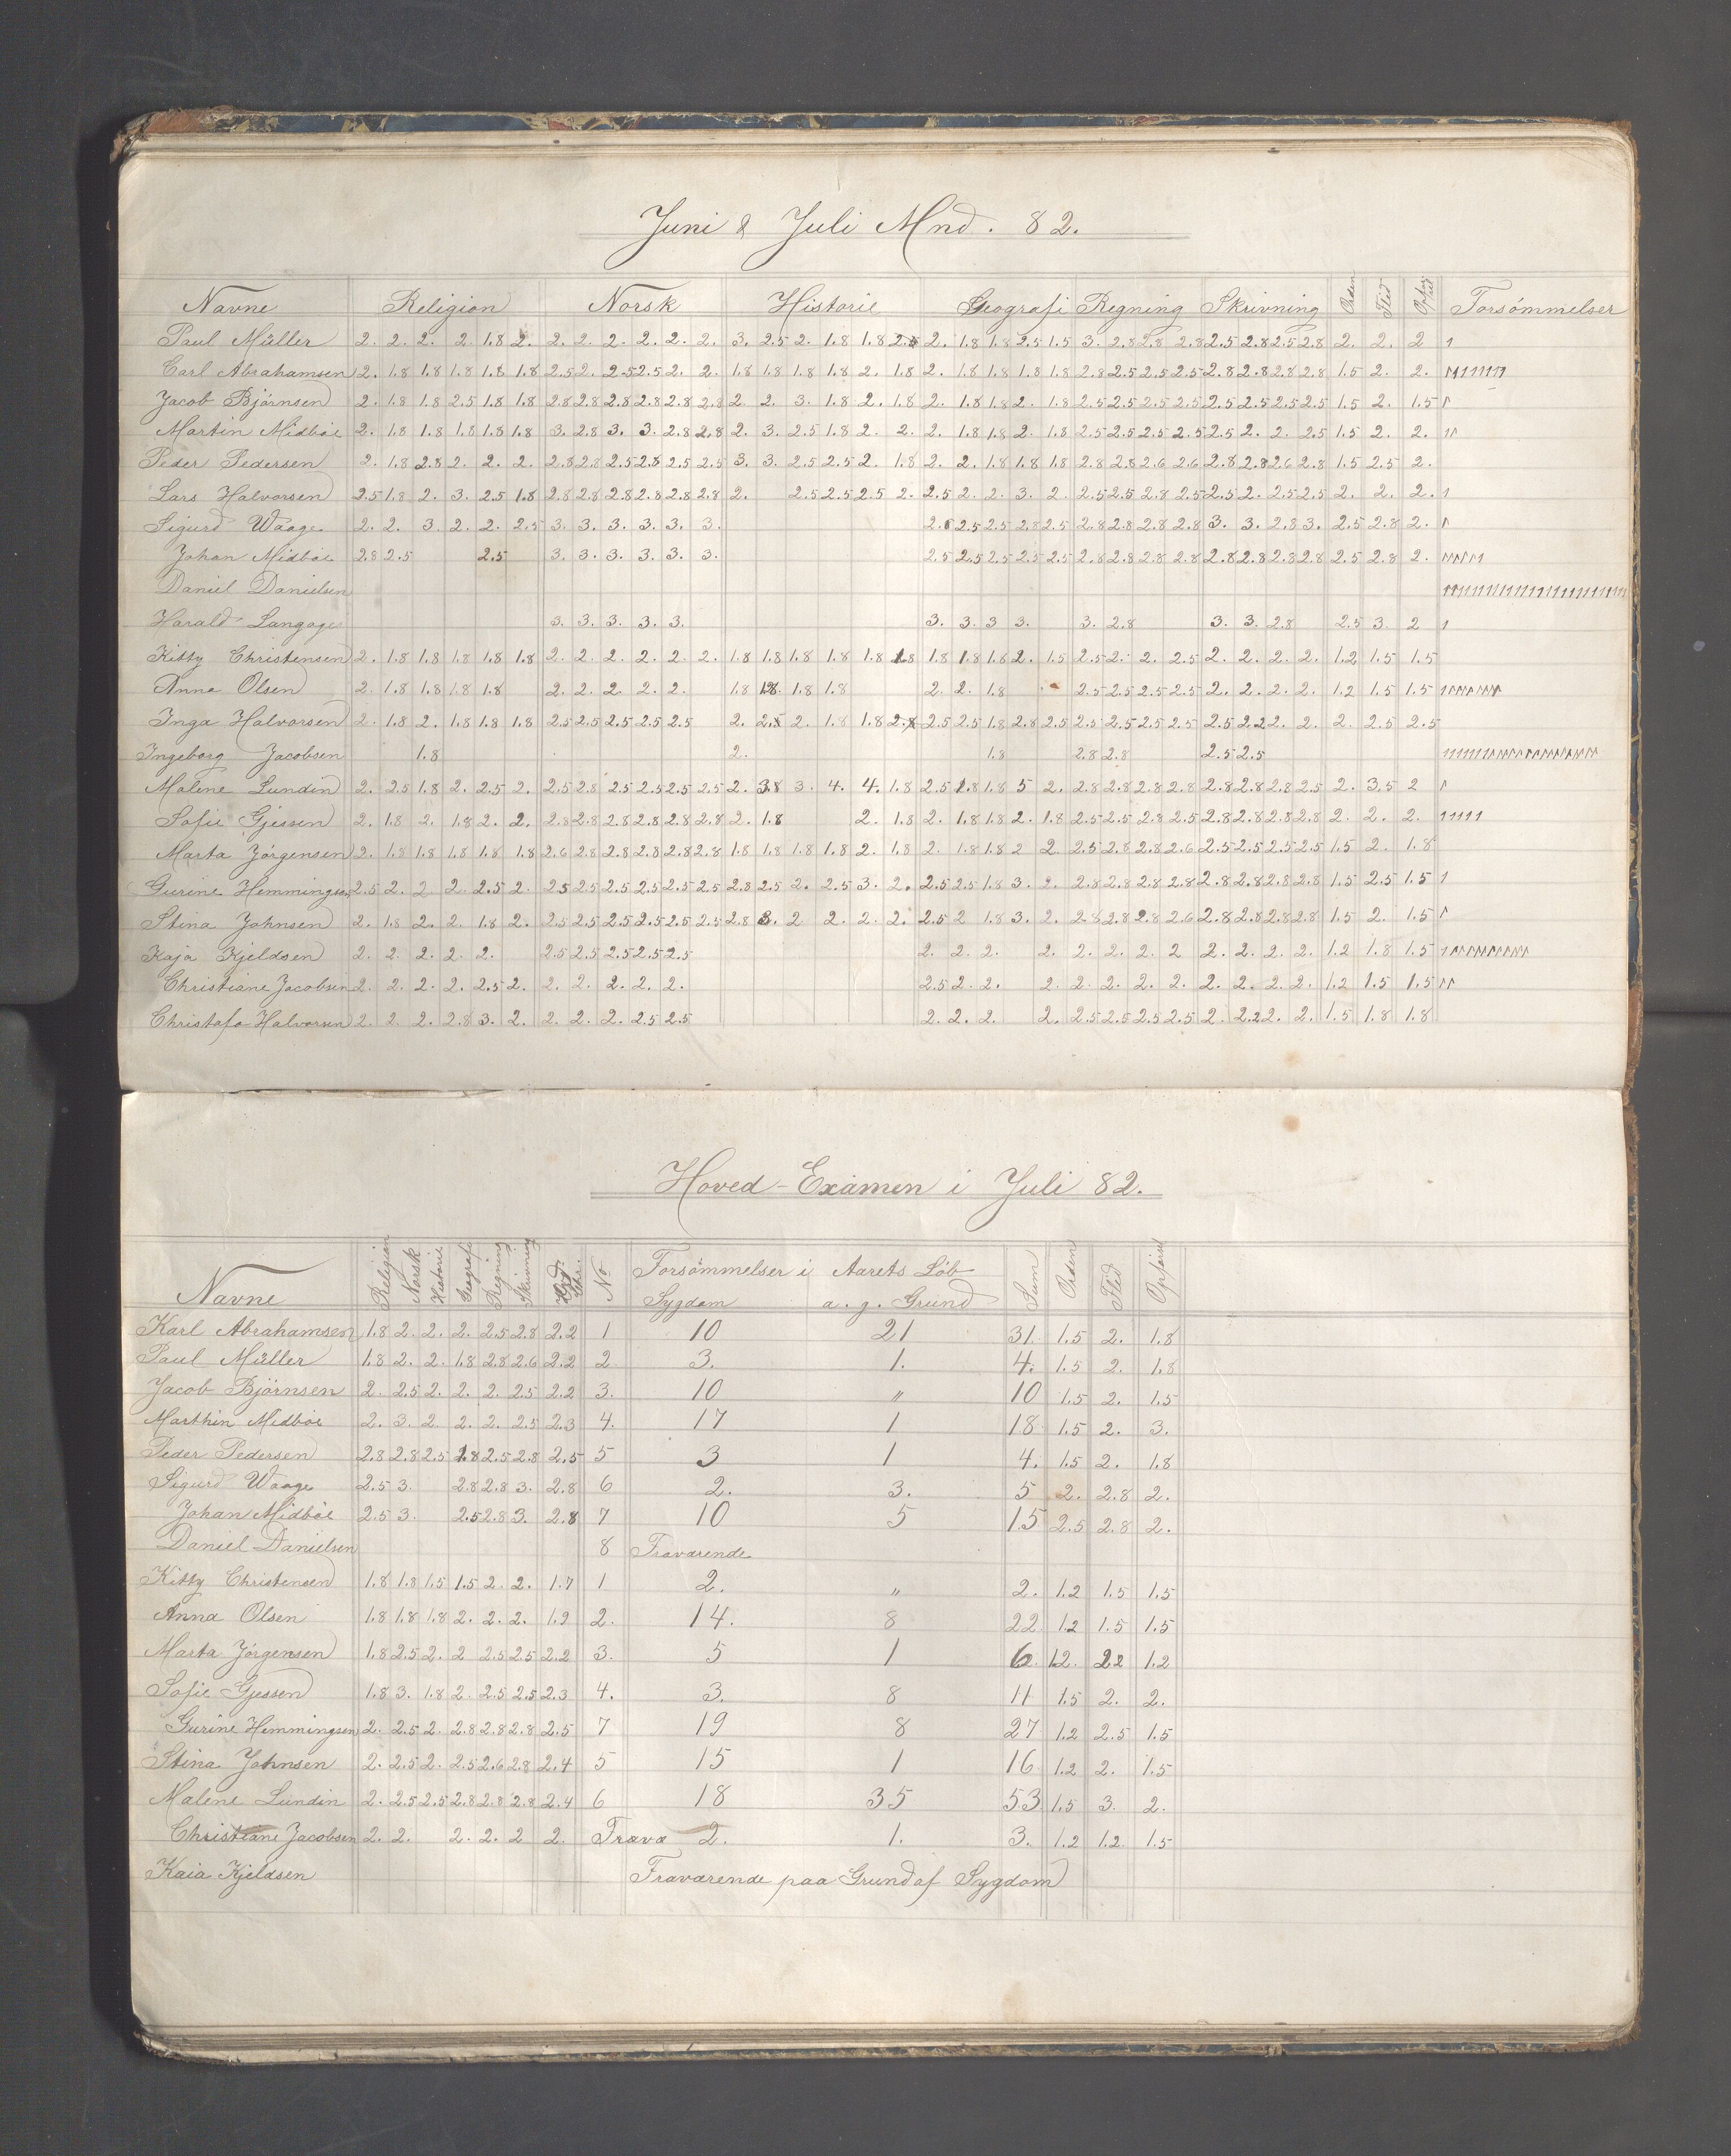 Juni & Juli Mnd. 82.
Navne Religion Norsk Historie Geografi Regning Skrivning Orden Flid Forsømmelser
Paul Müller 2. 2. 2. 2. 1.8 2. 2. 2. 2. 2. 2. 2. 3. 2.5 2. 1.8 1.8 2. 1.8 1.8 2.5 1.5 3. 2.8 2.8 2.8 2.5 2.8 2.5 2.8 2. 2. 2
Carl Abrahamsen 2. 1.8 1.8 1.8 1.8 1.8 2.5 2. 2.5 2.5 2. 2. 1.8 1.8 1.8 1.8 2. 1.8 2. 1.8 1.8 1.8 1.8 2.8 2.5 2.5 2.5 2.8 2.8 2.8 2.8 1.5 2. 2.
Jacob Bjørnsen 2. 1.8 1.8 2.5 1.8 1.8 2.8 2.8 2.8 2.8 2.8 2.8 2 2. 3. 1.8 2. 1.8 2. 1.8 1.8 2. 1.8 2.5 2.5 2.5 2.5 2.5 2.5 2.5 2.5 1.5 2. 1.5
Martin Midbøe 2. 1.8 1.8 1.8 1.8 1.8 3. 2.8 3. 3. 2.8 2.8 2. 3. 2.5 1.8 2. 2. 2. 1.8 1.8 2. 1.8 2.5 2.5 2.5 2.5 2.5 2. 2. 2.5 1.5 2. 2.
Peder Pedersen 2. 1.8 2.8 2. 2. 2. 2.8 2.8 2.5 2.8 2.5 2.5 3. 3. 2.5 2.5 2. 1.8 2. 2. 1.8 1.8 1.8 2.8 2.8 2.6 2.6 2.8 2.8 2.6 2.8 1.5 2.5 2.
Lars Halvorsen 2.5 1.8 2. 3. 2.5 1.8 2.8 2.8 2.8 2.8 2.8 2.8 2. 2.5 2.5 2.5 2. 2.5 2. 2. 3. 2. 2.5 2.5 2.8 2.5 2.5 2. 2.5 2.5 2. 2. 2.
Sigurd Waage 2. 2. 3. 2. 2. 2.5 3. 3. 3. 3. 3. 3. 2.8 2.5 2.5 2.8 2.5 2.8 2.8 2.8 2.8 3. 3. 2.8 3. 2.5 2.8 2.
Johan Midbøe 2.8 2.5 2.5 3. 3. 3. 3. 3. 3. 2.5 2.5 2.5 2.5 2.5 2.8 2.8 2.8 2.8 2.8 2.8 2.8 2.8 2.5 2.8 2.
Daniel Danielsen
Harald Langage 3. 3. 3. 3. 3. 3. 3. 3 3. 3. 2.8 3. 3. 2.8 2.5 3. 2
Kitty Christensen 2. 1.8 1.8 1.8 1.8 1.8 2. 2. 2. 2. 2. 2. 1.8 1.8 1.8 1.8 1.8 1.8 1.8 1.8 1.8 2. 1.5 2.5 2. 2. 2.5 2. 2. 2. 2. 1.2 1.5 1.5
Anna Olsen 2. 1.8 1.8 1.8 1.8 2. 2. 2. 2. 2. 1.8 1.8 1.8 1.8 2. 2. 1.8 2.5 2.5 2.5 2.5 2. 2. 2. 2. 1.2 1.5 1.5
Inga Halvorsen 2. 1.8 2. 1.8 1.8 1.8 2.5 2.5 2.5 2.5 2.5 2. 2.5 2. 1.8 1.8 2. 2.5 2.5 1.8 2.8 2.5 2.5 2.5 2.5 2.5 2.5 2.2 2. 2. 2. 2.5 2.5
Ingeborg Jacobsen 1.8 2. 1.8 2.8 2.8 2.5 2.5
Malene Lundin 2. 2.5 1.8 2. 2.5 2. 2.5 2.8 2.5 2.5 2.5 2.5 2. 3.8 3. 4. 4. 1.8 2.5 1.8 1.8 5 2. 2.8 2.8 2.8 2.8 2.8 2.8 2.8 2.5 2. 3.5 2
Sofie Gjessen 2. 1.8 2. 1.8 2. 2. 2.8 2.8 2.8 2.8 2.8 2.8 2. 1.8 2. 1.8 2. 1.8 1.8 2. 1.8 2.5 2.5 2.8 2.5 2.8 2.8 2.8 2.8 2. 2. 2.
Marta Jørgensen 2. 1.8 1.8 1.8 1.8 1.8 2.6 2.8 2.8 2.8 2.8 2.8 1.8 1.8 1.8 1.8 2. 1.8 2. 1.8 1.8 2 2. 2.5 2.8 2.8 2.6 2.5 2.5 2.5 2.5 1.5 2. 1.8
Gurine Hemmingsen 2.5 2. 2 2. 2.5 2. 2.5 2.5 2.5 2.5 2.5 2.5 2.8 2.5 2. 2.5 3. 2. 2.5 2.5 1.8 3. 2. 2.8 2.8 2.8 2.8 2.8 2.8 2.8 2.8 1.5 2.5 1.5
Stina Johnsen 2. 1.8 2. 2. 1.8 2. 2.5 2.5 2.5 2.5 2.5 2.5 2.8 3. 2 2. 2. 2. 2.5 2 1.8 3. 2. 2.8 2.8 2.8 2.6 2.8 2.8 2.8 2.8 1.5 2. 1.5
Kaja Kjeldsen 2. 2. 2. 2. 2. 2.5 2.5 2.5 2.5 2.5 2. 2. 2. 2. 2. 2. 2. 2 2. 2. 2. 2. 1.2 1.8 1.5
Christiane Jacobsen 2. 2. 2. 2. 2.5 2. 2. 2. 2. 2. 2. 2.5 2. 2. 2. 2. 2. 2. 2. 2. 2. 2. 2. 1.2 1.5 1.5
Christofa Halvorsen 2. 2. 2. 2.8 3. 2. 2. 2. 2. 2.5 2.5 2. 2. 2. 2. 2.5 2.5 2.5 2.5 2. 2.2 2. 2. 1.5 1.8 1.8
Hoved-Examen i Juli 82.
Navne Religion Norsk Historie Geografi Regning Skrivning No Forsømmelser i Aarets Løb Sum Orden Flid Opførsel
Sygdom a. g. Grund
Karl Abrahamsen 1.8 2. 2. 2. 2.5 2.8 2.2 1 10 21 31. 1.5 2. 1.8
Paul Müller 1.8 2. 2. 1.8 2.8 2.6 2.2 2 3. 1. 4. 1.5 2. 1.8
Jacob Bjørnsen 2. 2.5 2. 2. 2. 2.5 2.2 3. 10 " 10 1.5 2. 1.5
Marthin Midbøe 2. 3. 2. 2. 2. 2.5 2.3 4. 17 1 18 1.5 2. 3.
Peder Pedersen 2.8 2.8 2.5 1.8 2.5 2.8 2.5 5 3 1 4. 1.5 2. 1.8
Sigurd Waage 2.5 3. 2.8 2.8 3. 2.8 6 2. 3. 5 2. 2.8 2.
Johan Midbøe 2.5 3. 2.5 2.8 3. 2.8 7 10 5 15 2.5 2.8 2.
Daniel Danielsen 8 Fraværende
Kitty Christensen 1.8 1.8 1.5 1.5 2. 2. 1.7 1 2. " 2. 1.2 1.5 1.5
Anna Olsen 1.8 1.8 1.8 2. 2. 2. 1.9 2. 14. 8 22 1.2 1.5 1.5
Marta Jørgensen 1.8 2.5 2. 2 2.5 2.5 2.2 3. 5 1 6 1.2. 2.2 1.2
Sofie Gjessen 1.8 3. 1.8 2. 2.5 2.5 2.3 4. 3. 8 11 1.5 2. 2.
Gurine Hemmingsen 2. 2.5 2. 2.8 2.8 2.8 2.5 7 19 8 27 1.2 2.5 1.5
Stina Johnsen 2. 2.5 2. 2.5 2.6 2.8 2.4 5 15 1 16 1.2 2. 1.5
Malene Lundin 2. 2.5 2.5 2.8 2.8 2.8 2.4 6 18 35 53 1.5 3. 2.
Christiane Jacobsen 2. 2. 2. 2. 2 2. Fravæ 2. 1. 3. 1.2 1.2 1.5
Kaia Kjeldsen Fraværende paa Grund af Sygdom